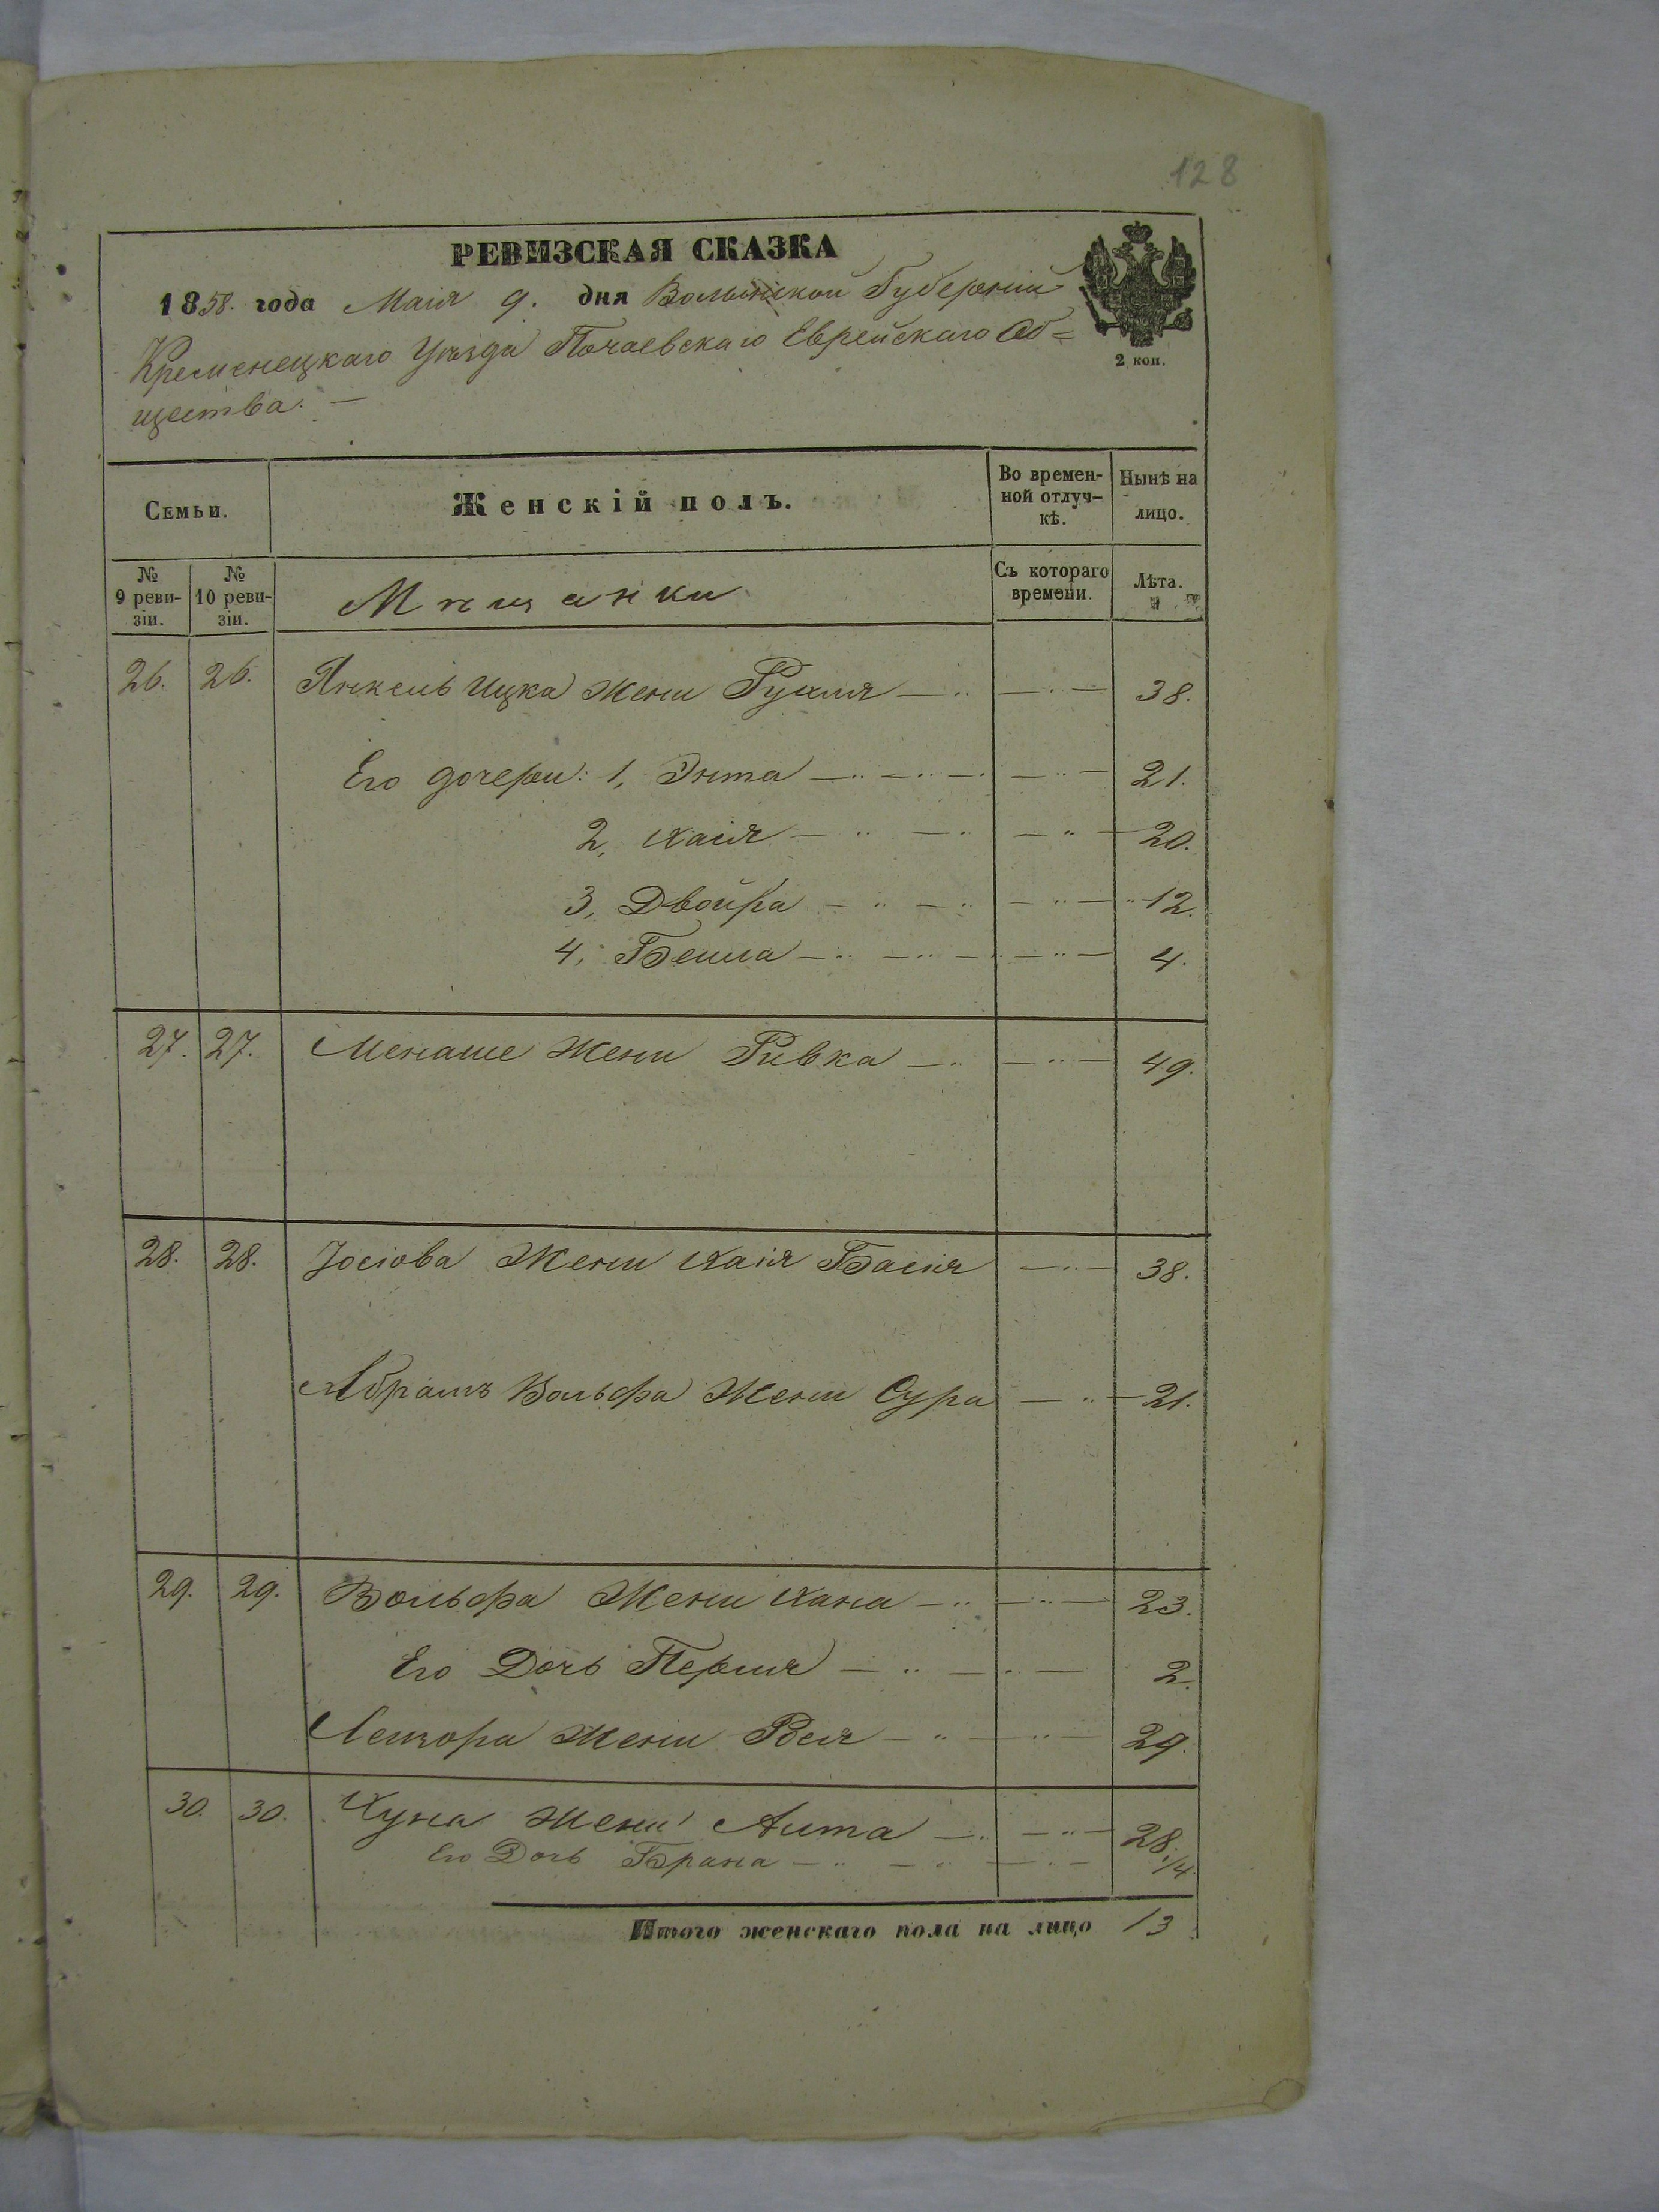 128
РЕВИЗСКАЯ СКАЗКА
1858. года Маія 9. дня Волынской Губерніи
Кременецкаго Уѣзда Почаевскаго Еврейскаго Об=
щества. —
2 коп.
Семьи. Женскій полъ. Во времен- Нынѣ на
ной отлуч- лицо.
кѣ.
№ № Мѣщанки Съ котораго Лѣта.
9 реви- 10 реви- времени.
зіи. зіи.
26. 26. Янкель Ицка жена Рухля 38.
Его дочери: 1, Энта 21.
2, Хаія 20.
3, Двойра 12.
4, Бейла 4.
27. 27. Менаше Жена Ривка 49.
28. 28. Іосіова Жена Хаія Басія 38.
Абрамъ Вольфа Жена Сура 21.
29. 29. Вольфа Жена Хана 23.
Его Дочь Перля 2.
Лейзора жена Рея 29.
30. 30. Хуна жена Аита 28.
Его Дочь Брана 1/4.
Итого женскаго пола на лицо 13